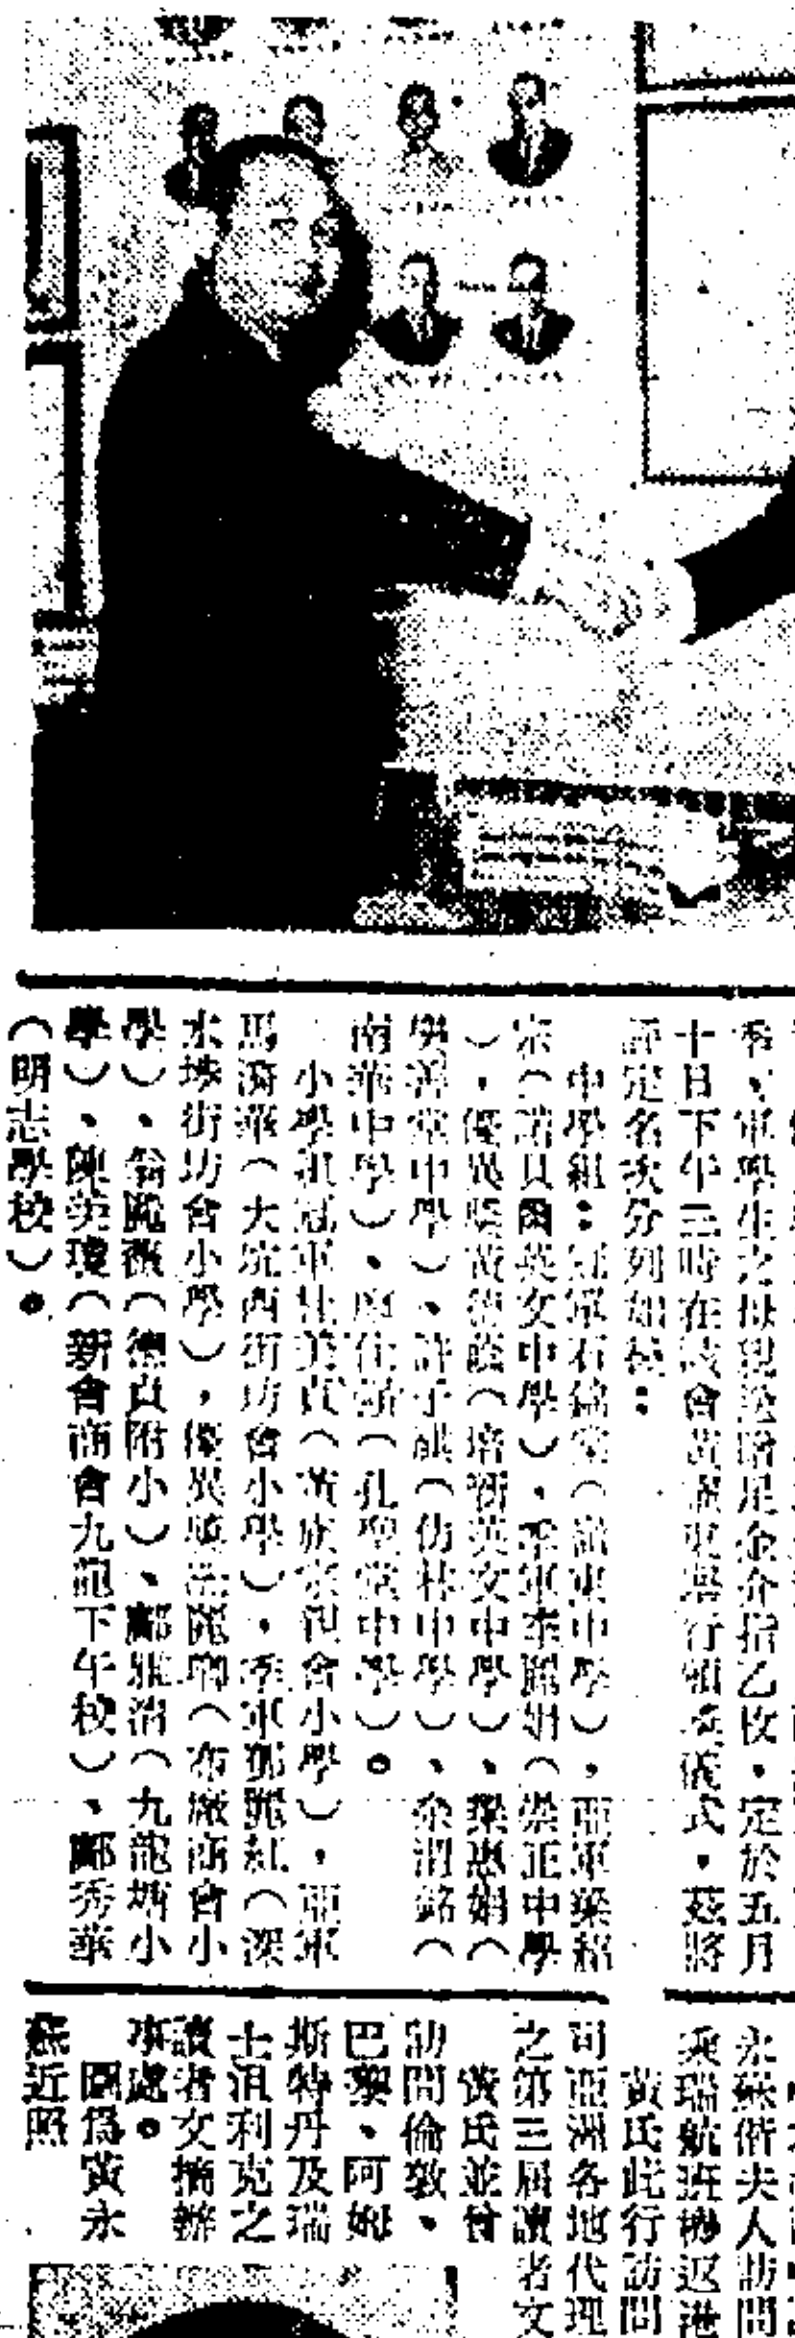 季、軍學生之母親送贈足金介指乙枚，定於五月
十日下午三時在該會黃 舉行頒獎儀式，茲將
評定名次分列如後：
中學組：冠軍石 （ 東中學），亞軍梁紹
宗（諾貝爾英文中學），季軍李麗娟（崇正中學
），優異獎黃 （培 英文中學）、梁惠娟（
樂善堂中學）、許子 （仿林中學）、余 銘（
南華中學）、 仕 （孔聖堂中學）。
小學組冠軍杜美貞（ 會小學），亞軍
馬 華（大坑西街坊會小學），季軍鄧麗紅（深
水埗街坊會小學），優異獎 麗 （布廠商會小
學）、翁 薇（德貞附小）、鄺 （九龍塘小
學）、陳英瓊（新會商會九龍下午校）、鄺秀華
（明志學校）。
永蘇偕夫人訪問
乘瑞航班機返港
黃氏此行訪問
司亞洲各地代理
之第三屆讀者文
黃氏並曾
訪問倫敦、
巴黎、阿姆
斯特丹及瑞
士沮利克之
讀者文摘辦
事處。
圖爲黃永
蘇近照